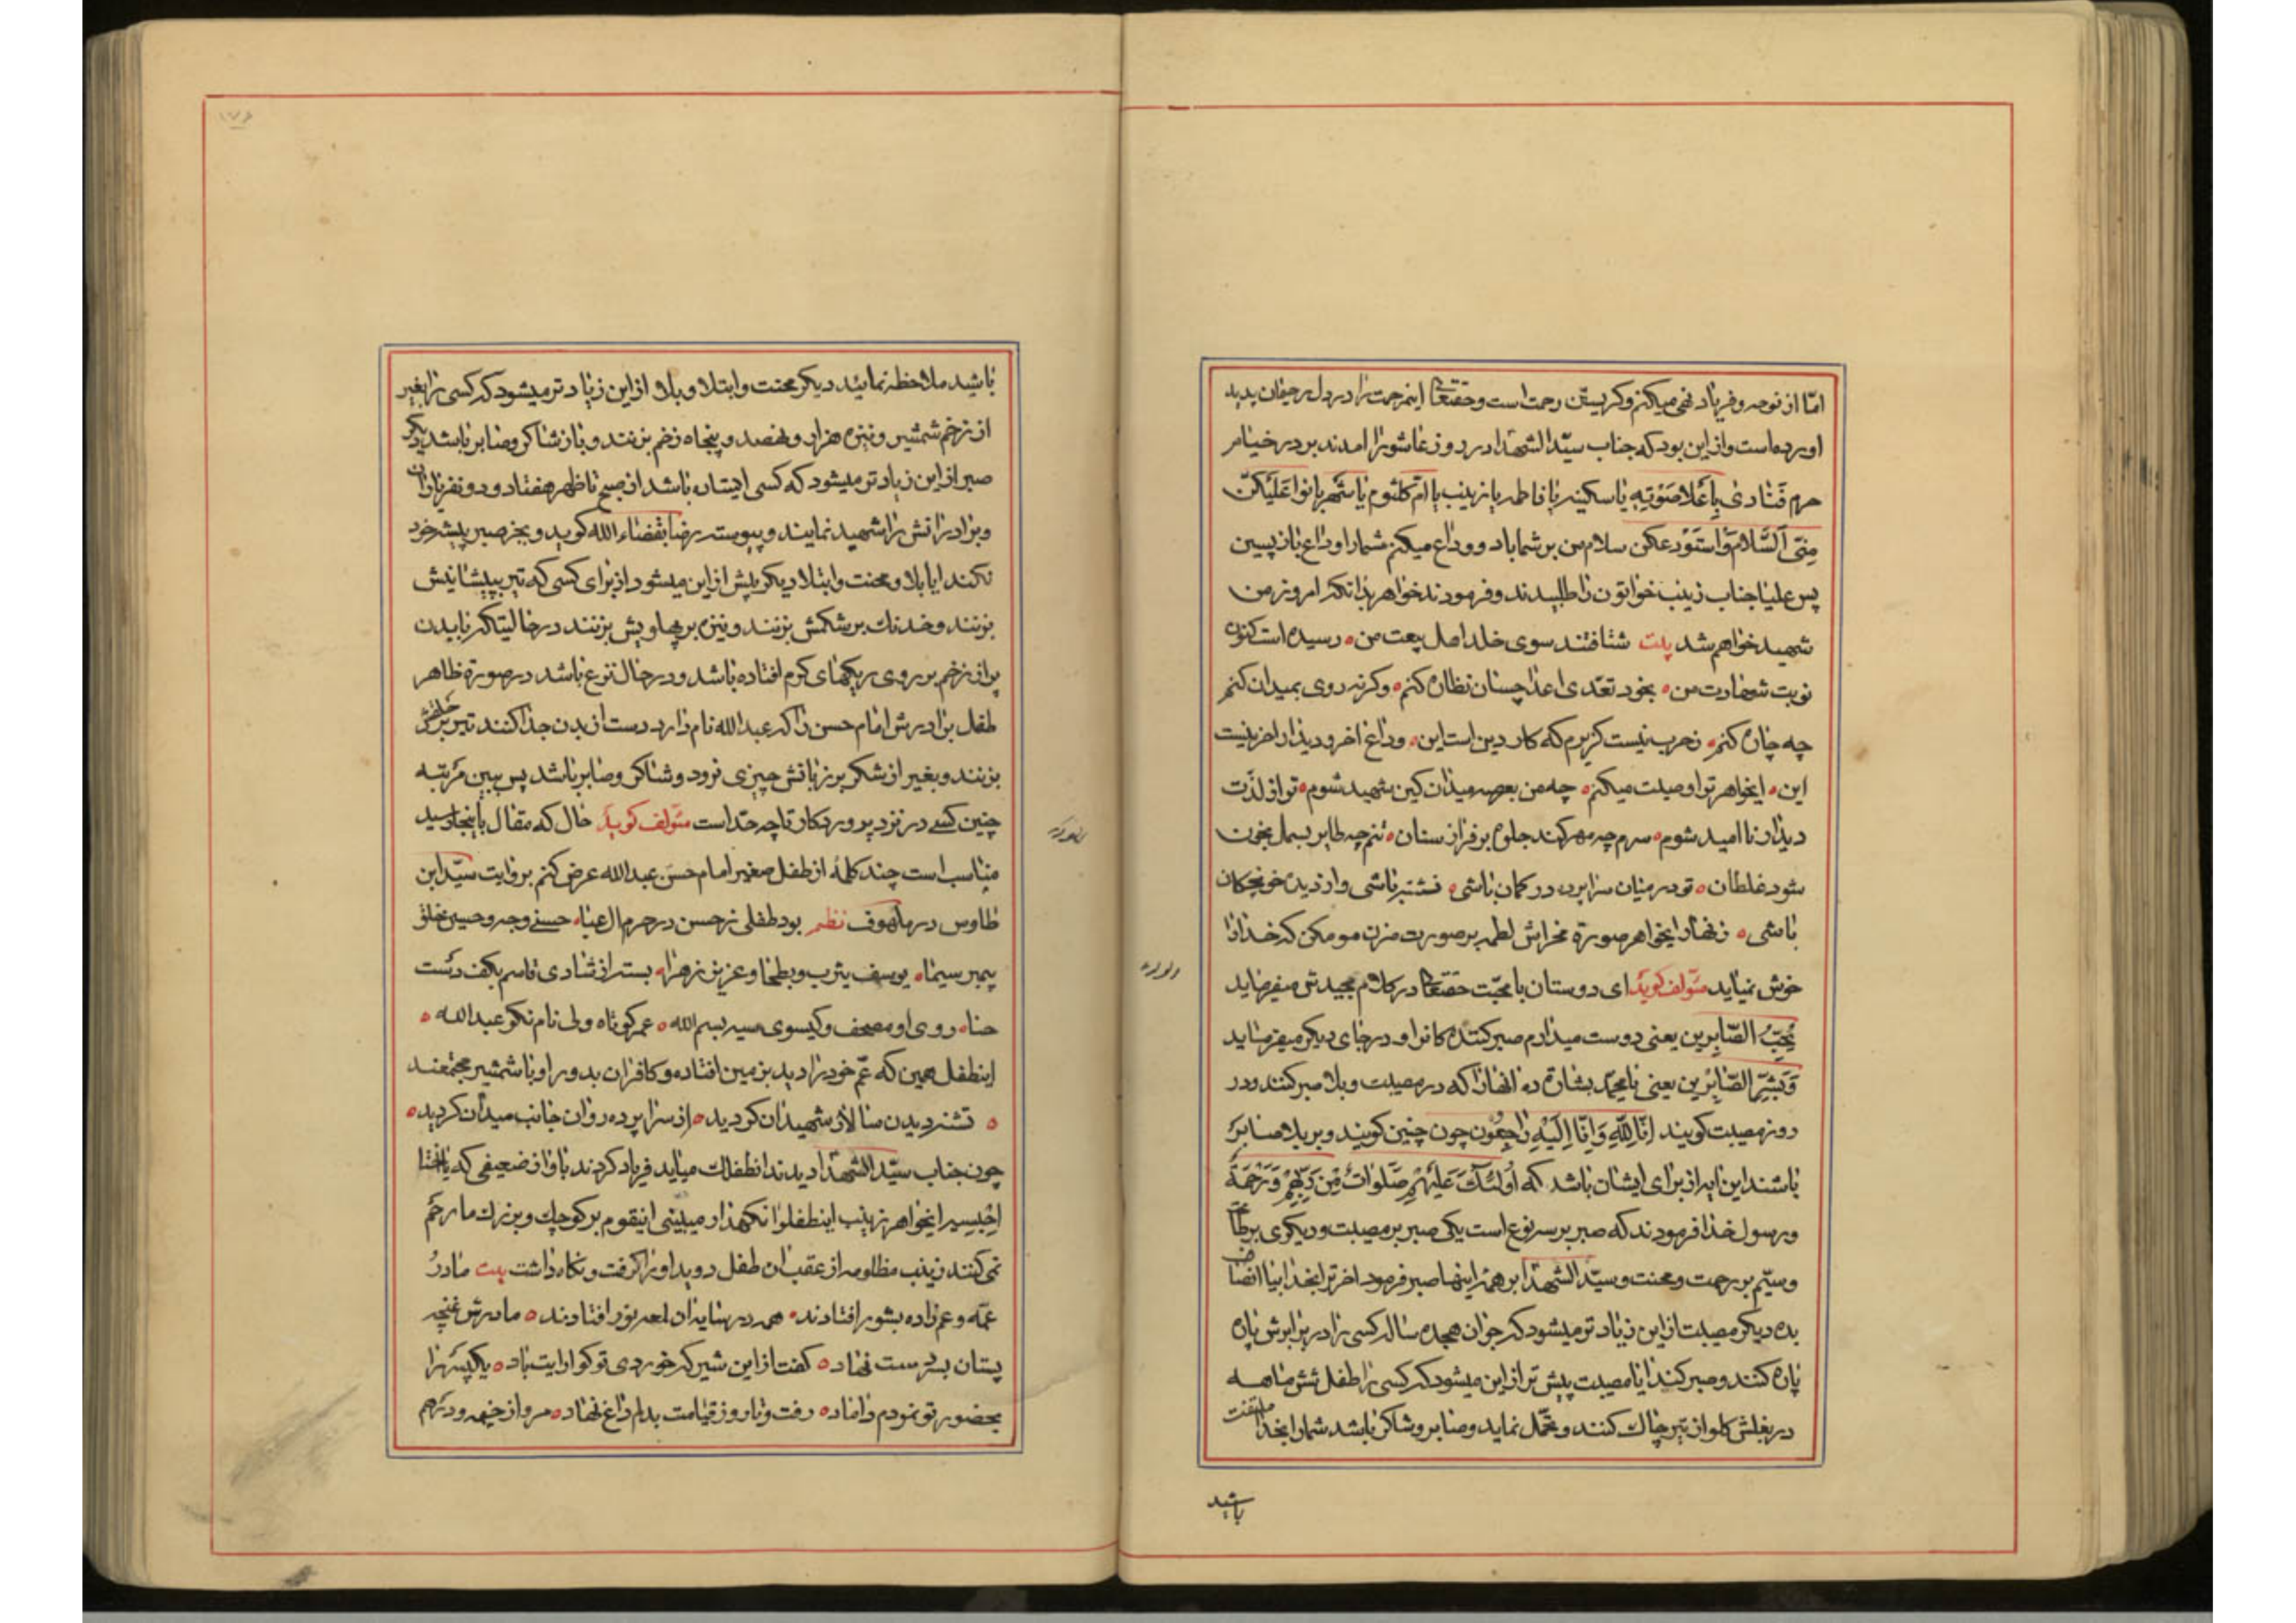 امّا از نوحه و فریاد نهی میکنم و کریستن رحمت است و حقتعالی اینمرحمت را در دل رحیمان پدید
اورده است و از این بود که جناب سیّد الشهدا در روز عاشورا امدند بر در خیام
حرم فَنادیٰ بِاَعْلا صَوْتِهِ یا سکینه یا فاطمه یا زینب یا امّ کلثوم یا شهربانوا عَلَیْکُنَّ
مِنّی اَلسَّلامُ وَاَسْتَوْدِعکن سلام من بر شما باد و وداع میکنم شما را وداع باز پسین
پس علیا جناب زینب خواتون را طلبیدند و فرمودند خواهر بدانکه امروز من
شهید خواهم شد بیت شتافتند سوی خلد اهل بیعت من ٥ رسیده است کنون
نوبت شهادت من ٥ بخود تعدّی اعدا چسان نظاره کنم ٥ وکرنه روی بمیدان کنم
چه چاره کنم ٥ ز حرب نیست کزیرم که کار دین است این ٥ وداع اخر و دیدار اخرینست
این ٥ ایخواهر ترا وصیت میکنم ٥ چه من بعرصه میدان کین شهید شوم ٥ تو از لذّت
دیدار نا امید شوم ٥ سرم چه مهر کند جلوه بر فراز سنان ٥ تنم چه طایر بسمل بخون
شود غلطان ٥ تو در میان سراپرده در کمان باشی ٥ نشسته باشی و از دیده خونچکان
باشی ٥ زنهار ایخواهر صورة مخراش لطمه بر صورت مزن مو مکن که خدا را
خوش نمیاید مؤلف کوید ای دوستان با محبّت حقتعالی در کلام مجیدش میفرماید
یُحِبُّ الصّابِرین یعنی دوست میدارم صبر کننده کانرا و در جای دیکر میفرماید
وَبَشِّرِ الصّابِرین یعنی یا محمّد بشارة ده انها را که در مصیبت و بلا صبر کنند و در
روز مصیبت کویند اِنّا لِلّٰهِ وَاِنّا اِلَیْهِ راجِعُون چون چنین کویند و بر بلا صابر
باشند این ایه از برای ایشان باشد که اُولٰئِکَ عَلَیْهِمْ صَلَواتٌ مِنْ رَبِّهِمْ وَرَحْمَةٌ
و رسول خدا فرمودند که صبر بر سه نوع است یکی صبر بر مصیبت و دیکری بر طاعت
و سیّم بر رحمت و محنت و سیّد الشهدا بر همهٔ اینها صبر فرمود اخر ترا بخدا بیا انصاف
بده دیکر مصیبت از این زیاد تر میشود که جوان هجده ساله کسی را در برابرش پاره
پاره کنند و صبر کند ایا مصیبت بیش تر از این میشود که کسی را طفل شش ماهه
در بغلش کلو از تیر چاک کنند و تحمّل نماید و صابر و شاکر باشد شما را بخدا ملتفت
باشید
باشید ملاحظه نمائید دیکر محنت و ابتلا و بلا از این زیاد تر میشود که کسی را بغیر
از زخم شمشیر و نیزه هزار و نهصد و پنجاه زخم بزنند و باز شاکر و صابر باشد دیکر
صبر از این زیاد تر میشود که کسی ایستاده باشد از صبح تا ظهر هفتاد و دو نفر یاران
و برادرانش را شهید نمایند و پیوسته رضا بقضاء الله کوید و بجز صبر پیشه خود
نکند ایا بلا و محنت و ابتلا دیکر بیش از این میشود از برای کسی که تیر بپیشانیش
بزنند و خدنک بر شکمش بزنند و نیزه بر پهلویش بزنند در حالیتاکه با بدن
پر از زخم بر روی ریکهای کرم افتاده باشد و در حال نزع باشد در صورة ظاهر
طفل برادرش امام حسن را که عبد الله نام دارد دست از بدن جدا کنند تیر بر حلقش
بزنند و بغیر از شکر بر زبانش چیزی نرود و شاکر و صابر باشد پس ببین مرتبه
چنین کسی در نزد پروردکار تا چه حدّ است مؤلف کوید حال که مقال باینجا رسید
مناسب است چند کلمهٔ از طفل صغیر امام حسن عبد الله عرض کنم بروایت سیّد ابن
طاوس در ملهوف نظم بود طفلی ز حسن در حرم ال عبا ٥ حسنی وجه و حسینی خلق
پیمبر سیما ٥ یوسف یثرب و بطحا و عزیز زهرا ٥ بسته از شادی قاسم بکف دست
حنا ٥ روی او مصحف و کیسوی سیه بسم الله ٥ عمر کوتاه ولی نام نکو عبد الله ٥
اینطفل همین که عمّ خود را دید بزمین افتاده و کافران بدور او با شمشیر مجتمعند
٥ تشنه دیدن سالار شهیدان کردید ٥ از سراپرده روان جانب میدان کردید ٥
چون جناب سیّد الشهدا دیدند انطفلک میاید فریاد کردند باواز ضعیفی که یا اختا
اِحْبِسیه ایخواهر زینب اینطفلرا نکهدار میبینی اینقوم بر کوچک و بزرک ما رحم
نمی کنند زینب مظلومه از عقب ان طفل دوید او را کرفت و نکاه داشت بیت مادر
عمّه و عم زاده بشور افتادند ٥ همه در سایه ان لمعه نور افتادند ٥ مادرش غنچه
پستان بسر دست نهاد ٥ کفت از این شیر که خوردی تو کوارایت باد ٥ یک پسر را
بحضور تو نمودم داماد ٥ رفت و تا روز قیامت بدلم داغ نهاد ٥ مرو از خیمه و